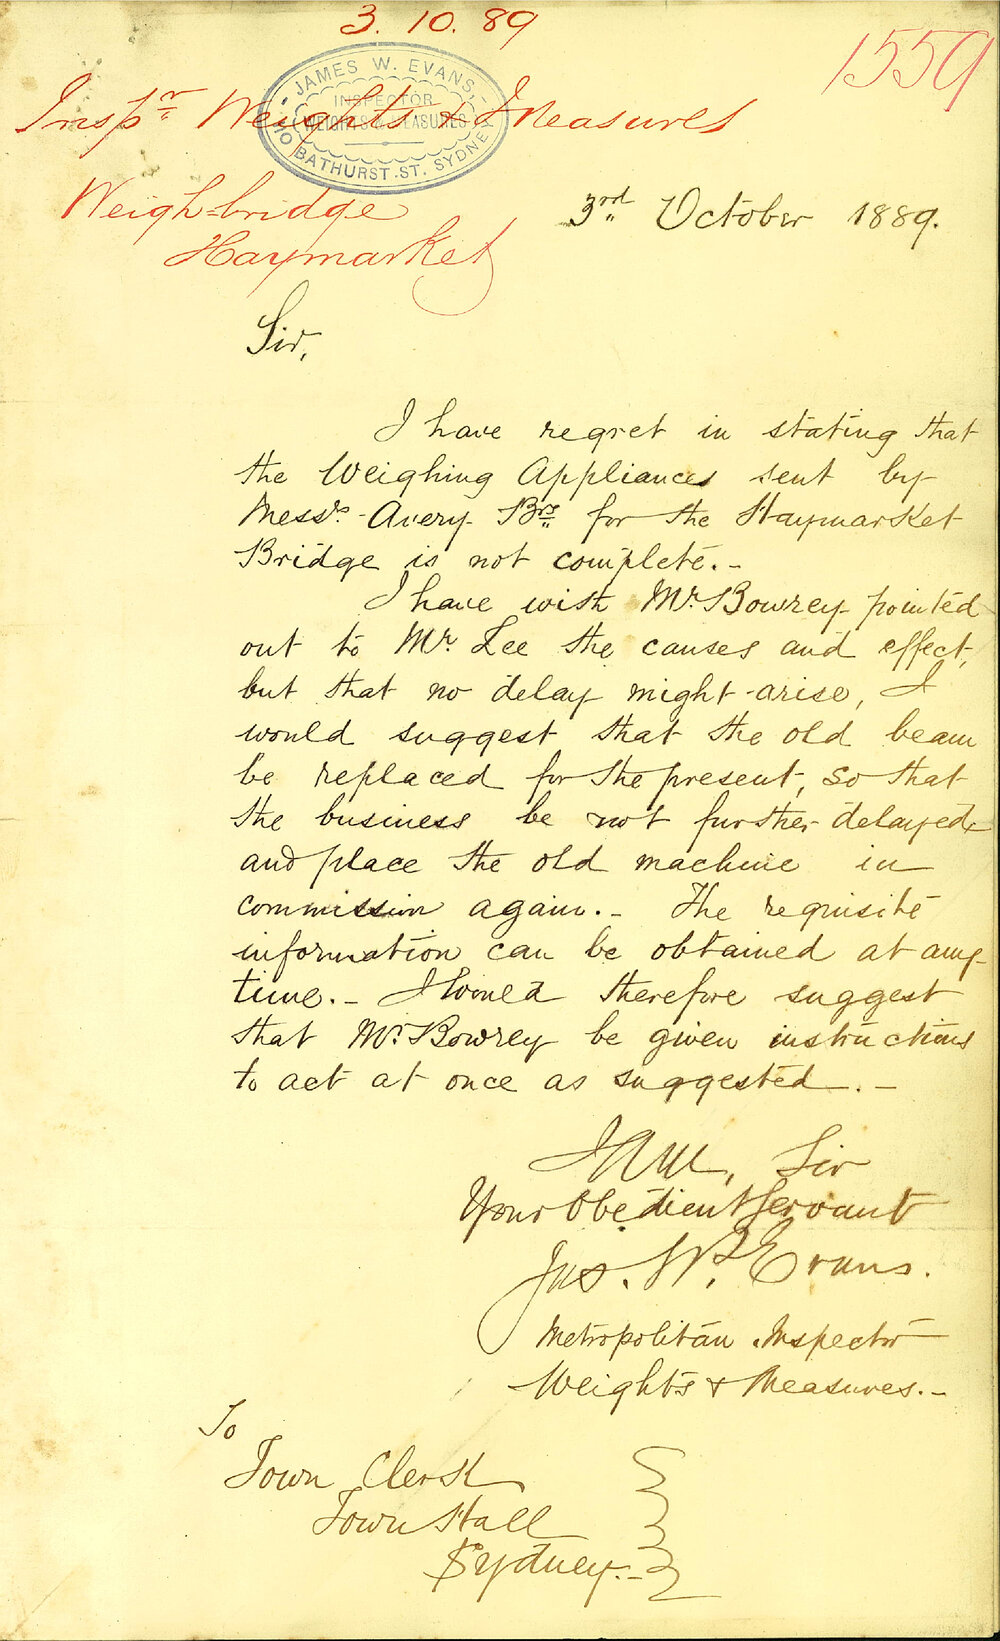 3. 10. 89
1559
JAMES W. EVANS,
INSPECTOR
WEIGHTS & MEASURES
BATHURST. ST. SYDNEY
Inspr Weights & Measures
Weigh-bridge
Haymarket
3rd October 1889.
Sir,
I have regret in stating that
the Weighing Appliances sent by
Messrs. Avery Brs for the Haymarket
Bridge is not complete. -
I have with Mr. Bowrey pointed
out to Mr. Lee the causes and effect,
but that no delay might arise, I
would suggest that the old beam
be replaced for the present, so that
the business be not further delayed
and place the old machine in
commission again. - The requisite
information can be obtained at any
time. - I would therefore suggest
that Mr. Bowrey be given instructions
to act at once as suggested. -
I am, Sir
Your Obedient Servant
Jas. W. Evans.
Metropolitan Inspector
Weights & Measures. -
To
Town Clerk
Town Hall
Sydney. -